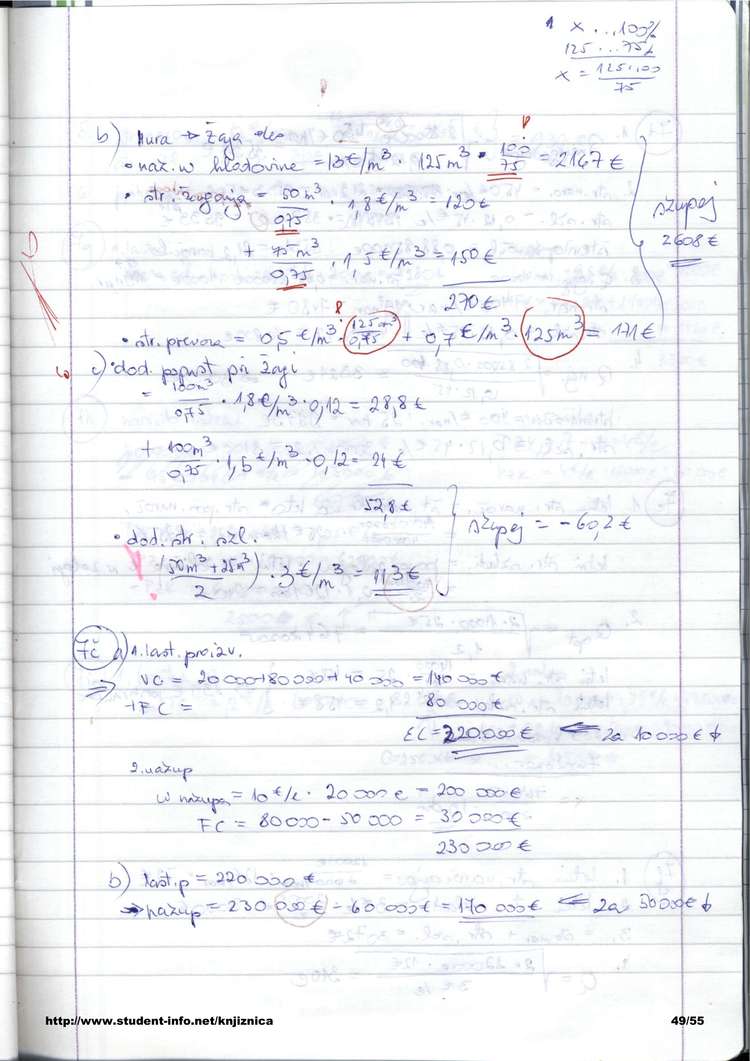 x ... 100%
125 ... 75%
x = 125·100 / 75
b) Hura → Žaga
• nab. v hlodovine = 13€/m³ · 125m³ · 100/75 = 2167€
• str. žaganja = 50m³/0,75 · 1,8€/m³ = 120€
+ 75m³/0,75 · 1,5€/m³ = 150€
270€
• str. prevoza = 0,5€/m³ · 125m³/0,75 + 0,7€/m³ · 125m³ = 171€
skupaj
2608€
c) • dod. popust pri Žagi
= 100m³/0,75 · 1,8€/m³ · 0,12 = 28,8€
+ 100m³/0,75 · 1,5€/m³ · 0,12 = 24€
52,8€
• dod. str. skl.
(50m³+25m³ / 2) · 3€/m³ = 113€
skupaj = -60,2€
7č a) 1. last. proizv.
⇒ VC = 20000+80000+40000 = 140000€
+FC = 80000€
EC = 220.000€ ⇐ za 10000€ ↓
2. nakup
= 10€/e · 20000e = 200000€
FC = 80000 - 50000 = 30000€
230000€
b) last.p = 220000€
→ nakup = 230000€ - 60000€ = 170000€ ⇐ za 50000€ ↓
http://www.student-info.net/knjiznica
49/55